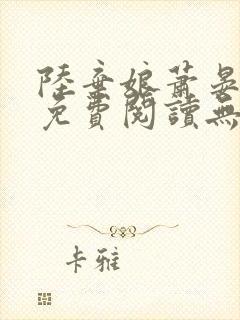 陸棄娘蕭晏
免費閱讀無
卡雅